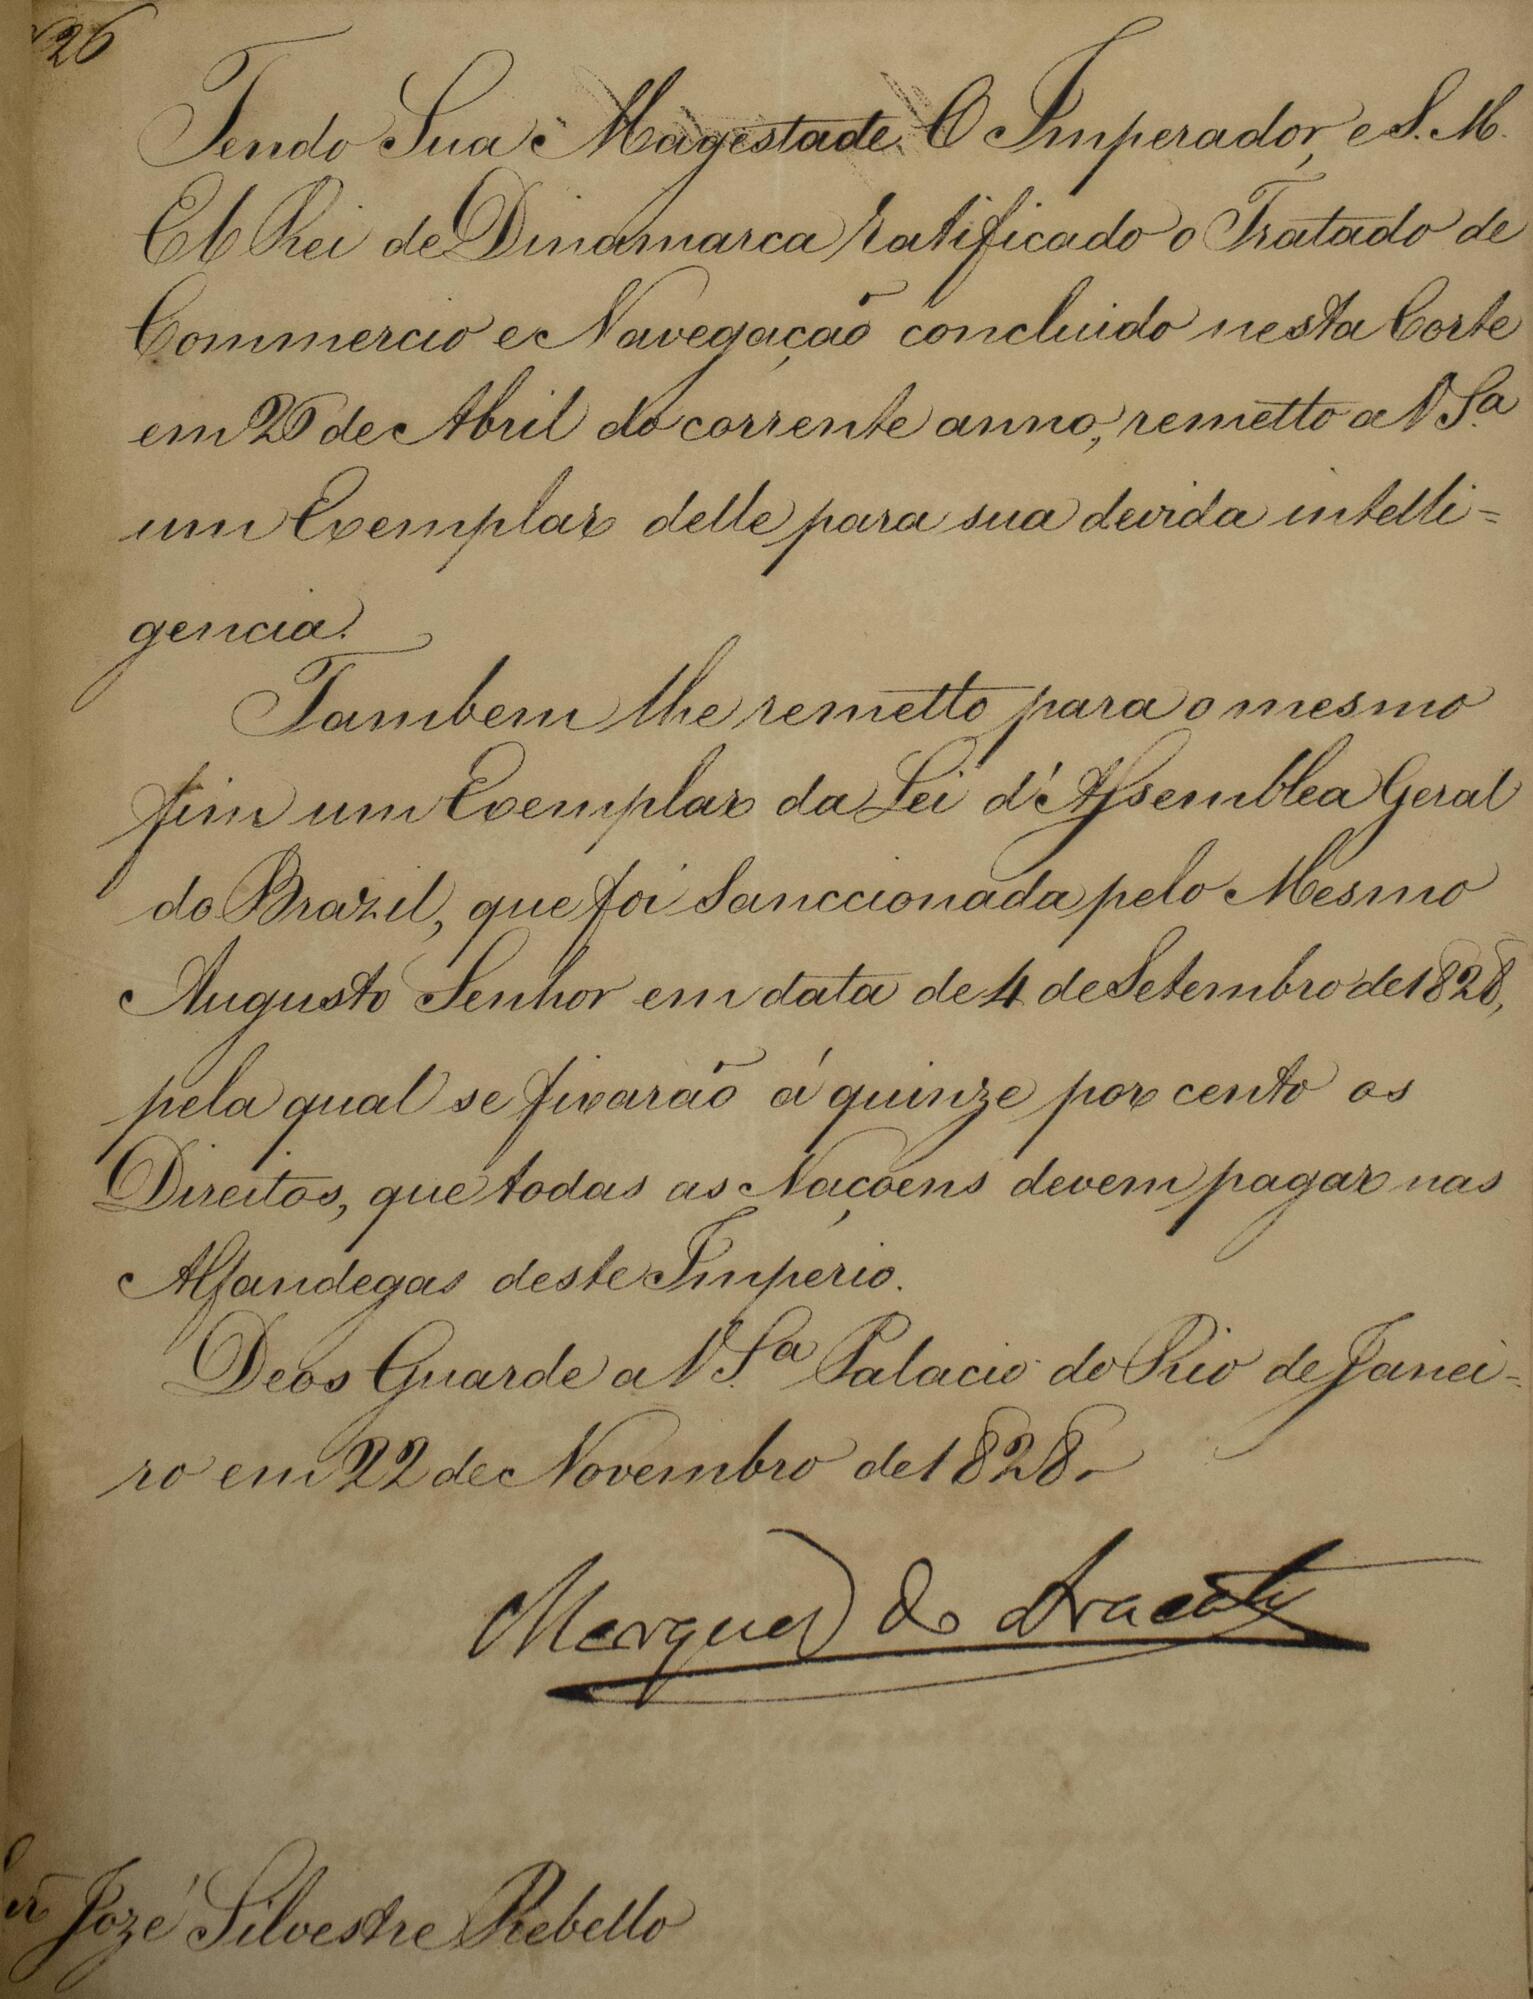 26
Tendo Sua Magestade O Imperador, e S. M.
El Rei de Dinamarca ratificado o Tratado de
Commercio e Navegação concluido nesta Corte
em 26 de Abril do corrente anno, remetto a V Sa
um Exemplar delle para sua devida intelli=
gencia.
Tambem lhe remetto para o mesmo
fim um Exemplar da Lei d'Assemblea Geral
do Brazil, que foi Sanccionada pelo Mesmo
Augusto Senhor em data de 4 de Setembro de 1828,
pela qual se fixarão á quinze por cento os
Direitos, que todas as Naçoens devem pagar nas
Alfandegas deste Imperio.
Deos Guarde a V Sa Palacio do Rio de Janei-
ro em 22 de Novembro de 1828.
Marquez de Aracaty
Jozé Silvestre Rebello